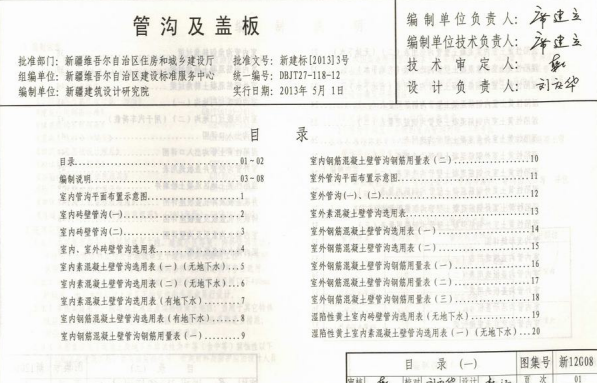 管沟及盖板
批准部门：新疆维吾尔自治区住房和城乡建设厅 批准文号：新建标[2013]3号
组编单位：新疆维吾尔自治区建设标准服务中心 统一编号：DBJT27-118-12
编制单位：新疆建筑设计研究院 实行日期：2013年 5月 1日
编制单位负责人：
编制单位技术负责人：
技术审定人：
设计负责人：
目 录
目录...01-02
编制说明...03-08
室内管沟平面布置示意图...1
室内砖壁管沟(一)...2
室内砖壁管沟(二)...3
室内、室外砖壁管沟选用表...4
室内素混凝土壁管沟选用表(一)(无地下水)...5
室内素混凝土壁管沟选用表(二)(无地下水)...6
室内素混凝土壁管沟选用表(有地下水)...7
室内钢筋混凝土壁管沟选用表(有地下水)...8
室内钢筋混凝土壁管沟钢筋用量表(一)...9
室内钢筋混凝土壁管沟钢筋用量表(二)...10
室外管沟平面布置示意图...11
室外管沟(一)、(二)...12
室外素混凝土壁管沟选用表...13
室外钢筋混凝土壁管沟选用表(一)...14
室外钢筋混凝土壁管沟选用表(二)...15
室外钢筋混凝土壁管沟钢筋用量表(一)...16
室外钢筋混凝土壁管沟钢筋用量表(二)...17
室外钢筋混凝土壁管沟钢筋用量表(三)...18
湿陷性黄土室内砖壁管沟选用表(无地下水)...19
湿陷性黄土室内素混凝土壁管沟选用表(一)(无地下水)...20
目 录 (一) 图集号 新12G08
审核 校对 设计 页次 01